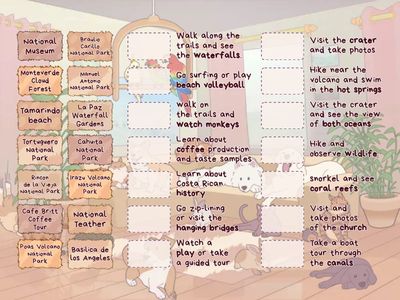 National
Museum
Braulio
Carillo
National Park
Monteverde
Cloud
Forest
Manuel
Antonio
National Park
Tamarindo
beach
La Paz
Waterfall
Gardens
Tortuguero
National
Park
Cahuita
National
Park
Rincon
de la Vieja
National Park
Irazu Volcano
National
Park
Cafe Britt
Coffee
Tour
National
Teather
Poas Volcano
National
Park
Basilica de
los Angeles
Walk along the
trails and see
the waterfalls
Go surfing or play
beach volleyball
Walk on
the trails and
watch monkeys
Learn about
coffee production
and taste samples
Learn about
Costa Rican
history
Go zip-lining
or visit the
hanging bridges
Watch a
play or take
a guided tour
Visit the crater
and take photos
Hike near the
volcano and swim
in the hot springs
Visit the crater
and see the view
of both oceans
Hike and
observe wildlife
Snorkel and see
coral reefs
Visit and
take photos
of the church
Take a boat
tour through
the canals